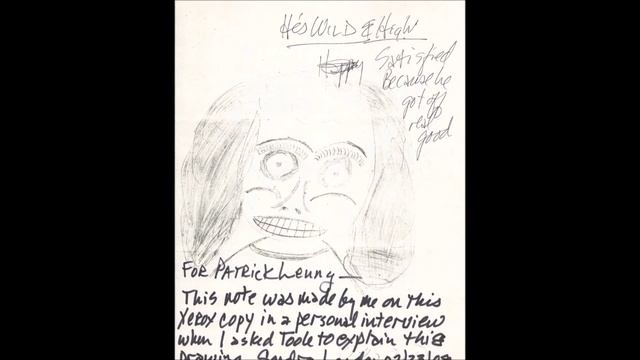 He's WILD & HIGH
Happy Satisfied
Because he
got off
real
good
FOR PATRICK Leung —
This note was made by me on this
Xerox copy in a personal interview
when I asked Toole to explain this
Drawing. Sondra London